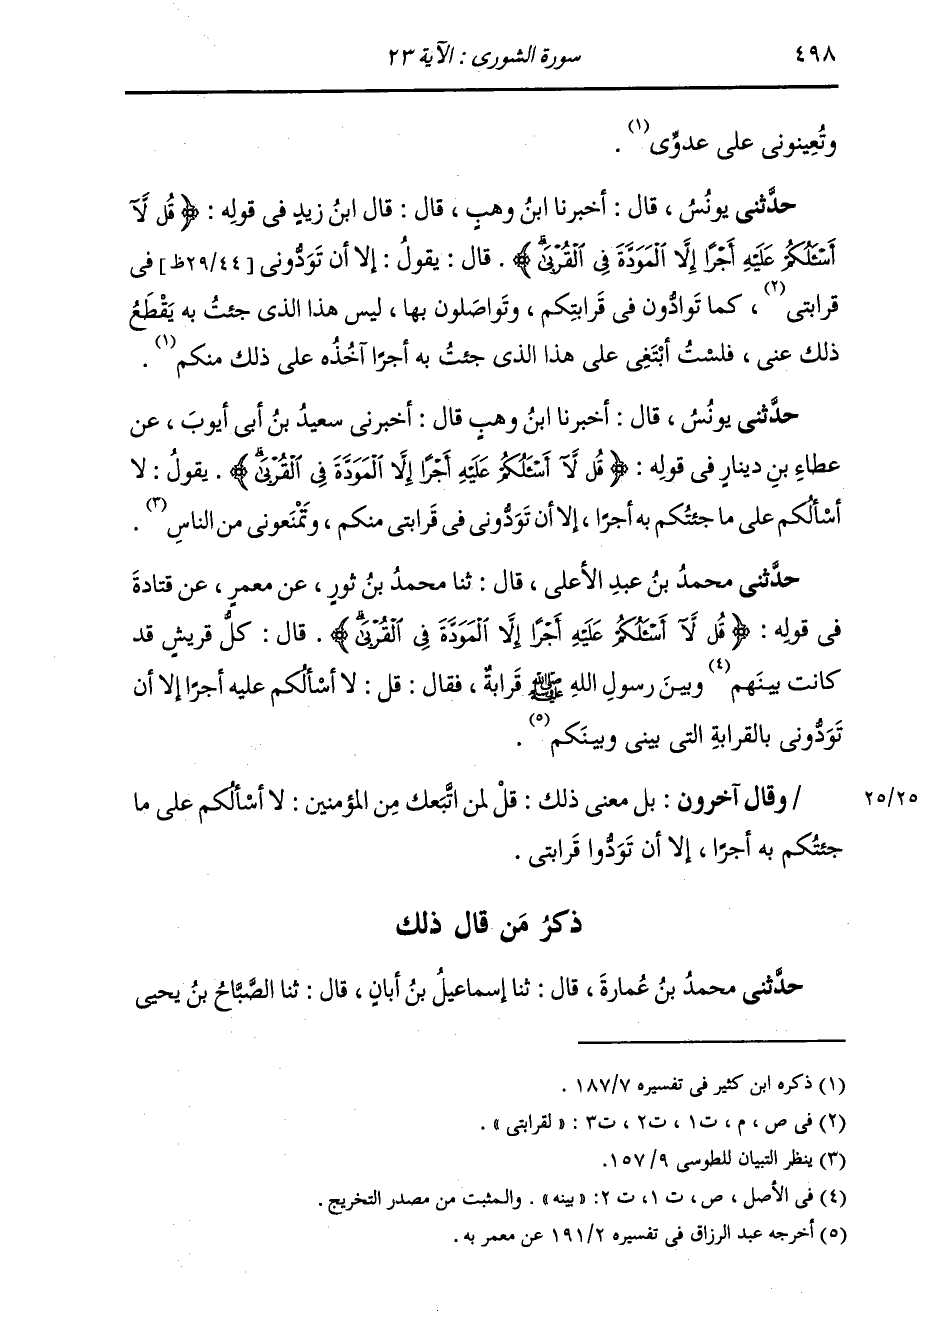 ٤٩٨
سورة الشورى : الآية ٢٣
وتُعِينونى على عدوِّى(١) .
حدَّثنى يونُسُ ، قال : أخبرنا ابنُ وهبٍ ، قال : قال ابنُ زيدٍ فى قولِه : ﴿ قُل لَّآ
أَسْـَٔلُكُمْ عَلَيْهِ أَجْرًا إِلَّا ٱلْمَوَدَّةَ فِى ٱلْقُرْبَىٰۗ ﴾ . قال : يقولُ : إلا أن تَوَدُّونى [٢٩/٤٤ظ] فى
قرابتى(٢) ، كما تَوادُّون فى قَرابتِكم ، وتَواصَلون بها ، ليس هذا الذى جئتُ به يَقْطَعُ
ذلك عنى ، فلسْتُ أبْتَغِى على هذا الذى جئتُ به أجرًا آخُذُه على ذلك منكم(١) .
حدَّثنى يونُسُ ، قال : أخبرنا ابنُ وهبٍ قال : أخبرنى سعيدُ بنُ أبى أيوبَ ، عن
عطاءِ بنِ دينارٍ فى قولِه : ﴿ قُل لَّآ أَسْـَٔلُكُمْ عَلَيْهِ أَجْرًا إِلَّا ٱلْمَوَدَّةَ فِى ٱلْقُرْبَىٰۗ ﴾ . يقولُ : لا
أسْأَلُكم على ما جئتُكم به أجرًا ، إلا أن تَوَدُّونى فى قَرابتى منكم ، وتَمْنَعونى من الناسِ(٣) .
حدَّثنى محمدُ بنُ عبدِ الأعلى ، قال : ثنا محمدُ بنُ ثورٍ ، عن معمرٍ ، عن قتادةَ
فى قولِه : ﴿ قُل لَّآ أَسْـَٔلُكُمْ عَلَيْهِ أَجْرًا إِلَّا ٱلْمَوَدَّةَ فِى ٱلْقُرْبَىٰۗ ﴾ . قال : كلُّ قريشٍ قد
كانت بينَهم(٤) وبينَ رسولِ اللهِ ﷺ قَرابةٌ ، فقال : قل : لا أسْأَلُكم عليه أجرًا إلا أن
تَوَدُّونى بالقَرابةِ التى بينى وبينَكم(٥) .
٢٥/٢٥
/ وقال آخرون : بل معنى ذلك : قلْ لمن اتَّبَعك مِن المؤمنين : لا أسألُكم على ما
جئتُكم به أجرًا ، إلا أن تَوَدُّوا قَرابتى .
ذكرُ مَن قال ذلك
حدَّثنى محمدُ بنُ عُمارةَ ، قال : ثنا إسماعيلُ بنُ أبانٍ ، قال : ثنا الصَّبَّاحُ بنُ يحيى
(١) ذكره ابن كثير فى تفسيره ١٨٧/٧ .
(٢) فى ص ، م ، ت١ ، ت٢ ، ت٣ : « لقرابتى » .
(٣) ينظر التبيان للطوسى ٩/ ١٥٧.
(٤) فى الأصل ، ص، ت ١، ت ٢: « بينه » . والمثبت من مصدر التخريج .
(٥) أخرجه عبد الرزاق فى تفسيره ١٩١/٢ عن معمر به .